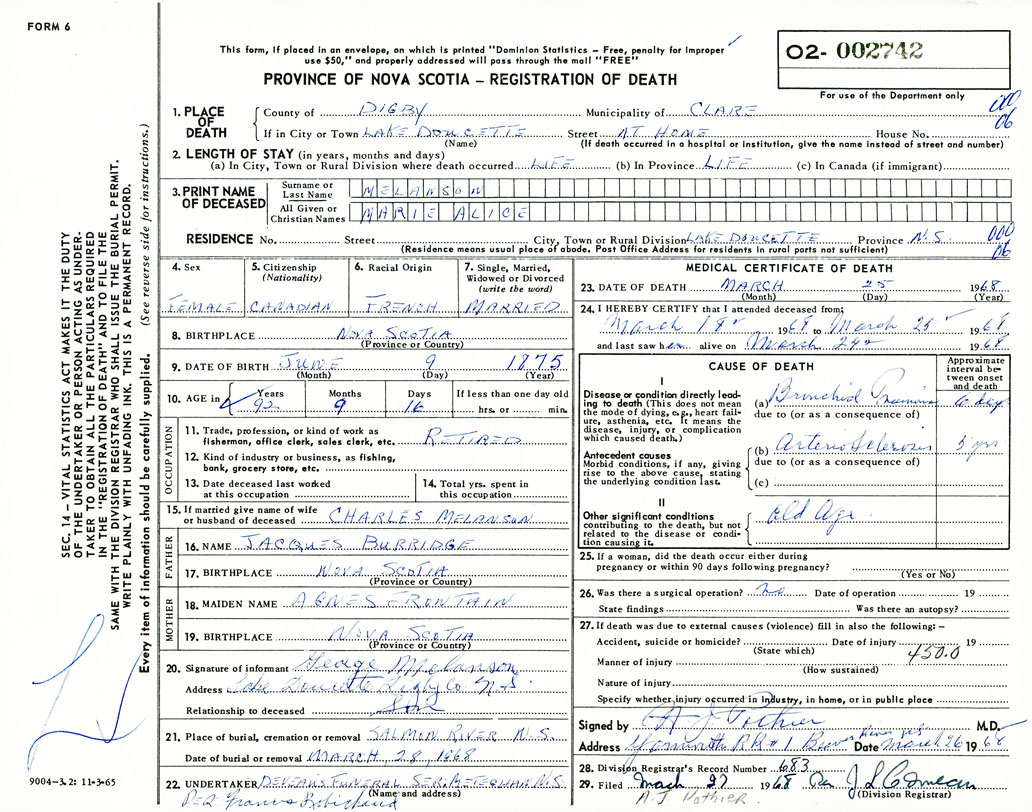 FORM 6
This form, if placed in an envelope, on which is printed "Dominion Statistics – Free, penalty for improper
use $50," and properly addressed will pass through the mail "FREE"
PROVINCE OF NOVA SCOTIA – REGISTRATION OF DEATH
02- 002742
For use of the Department only
000
06
SEC. 14 – VITAL STATISTICS ACT MAKES IT THE DUTY
OF THE UNDERTAKER OR PERSON ACTING AS UNDER-
TAKER TO OBTAIN ALL THE PARTICULARS REQUIRED
IN THE "REGISTRATION OF DEATH" AND TO FILE THE
SAME WITH THE DIVISION REGISTRAR WHO SHALL ISSUE THE BURIAL PERMIT.
WRITE PLAINLY WITH UNFADING INK. THIS IS A PERMANENT RECORD.
Every item of information should be carefully supplied. (See reverse side for instructions.)
1. PLACE OF DEATH
County of DIGBY Municipality of CLARE
If in City or Town LAKE DOUCETTE Street AT HOME House No.
(Name) (If death occurred in a hospital or institution, give the name instead of street and number)
2. LENGTH OF STAY (in years, months and days)
(a) In City, Town or Rural Division where death occurred LIFE (b) In Province LIFE (c) In Canada (if immigrant)
3. PRINT NAME OF DECEASED
Surname or Last Name MELANSON
All Given or Christian Names MARIE ALICE
RESIDENCE No. Street City, Town or Rural Division LAKE DOUCETTE Province N.S. 000
06
(Residence means usual place of abode. Post Office Address for residents in rural parts not sufficient)
4. Sex FEMALE
5. Citizenship (Nationality) CANADIAN
6. Racial Origin FRENCH
7. Single, Married, Widowed or Divorced (write the word) MARRIED
8. BIRTHPLACE NOVA SCOTIA
(Province or Country)
9. DATE OF BIRTH JUNE 9 1875
(Month) (Day) (Year)
10. AGE in Years 92 Months 9 Days 16 If less than one day old
hrs. or min.
OCCUPATION
11. Trade, profession, or kind of work as
fisherman, office clerk, sales clerk, etc. RETIRED
12. Kind of industry or business, as fishing,
bank, grocery store, etc.
13. Date deceased last worked
at this occupation
14. Total yrs. spent in
this occupation
15. If married give name of wife
or husband of deceased CHARLES MELANSON
FATHER
16. NAME JACQUES BURRIDGE
17. BIRTHPLACE NOVA SCOTIA
(Province or Country)
MOTHER
18. MAIDEN NAME AGNES FRONTAIN
19. BIRTHPLACE NOVA SCOTIA
(Province or Country)
20. Signature of informant George Melanson
Address Lake Doucette Digby Co. N.S.
Relationship to deceased Son
21. Place of burial, cremation or removal SALMON RIVER N.S.
Date of burial or removal MARCH, 28, 1968
22. UNDERTAKER DEVEAU'S FUNERAL SER. METEGHAN N.S.
(Name and address)
9004–3.2: 11-3-65
MEDICAL CERTIFICATE OF DEATH
23. DATE OF DEATH MARCH 25 1968
(Month) (Day) (Year)
24. I HEREBY CERTIFY that I attended deceased from;
March 18 1968 to March 25 1968
and last saw her alive on March 24 1968
CAUSE OF DEATH
Approximate interval between onset and death
I
Disease or condition directly lead-
ing to death (This does not mean
the mode of dying, e.g., heart fail-
ure, asthenia, etc. It means the
disease, injury, or complication
which caused death.)
(a) Bronchial 6 days
due to (or as a consequence of)
Antecedent causes
Morbid conditions, if any, giving
rise to the above cause, stating
the underlying condition last.
(b) Arteriosclerosis 5 yrs
due to (or as a consequence of)
(c)
II
Other significant conditions
contributing to the death, but not
related to the disease or condi-
tion causing it.
Old Age
25. If a woman, did the death occur either during
pregnancy or within 90 days following pregnancy?
(Yes or No)
26. Was there a surgical operation? no Date of operation 19
State findings Was there an autopsy?
27. If death was due to external causes (violence) fill in also the following: –
Accident, suicide or homicide? Date of injury 19
(State which) 450.0
Manner of injury
(How sustained)
Nature of injury
Specify whether injury occurred in Industry, in home, or in public place
Signed by A J Pothier M.D.
Address Yarmouth RR#1 Beaver River NS Date March 26 1968
28. Division Registrar's Record Number 683
29. Filed March 27 1968
(Division Registrar)
A. J. Pothier